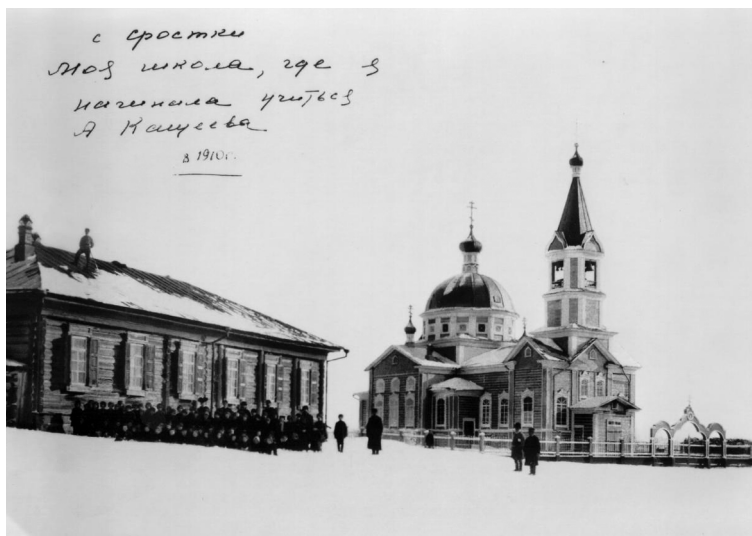 с Сростки
Моя школа, где я
начинала учиться
А Кащеева
в 1910г.